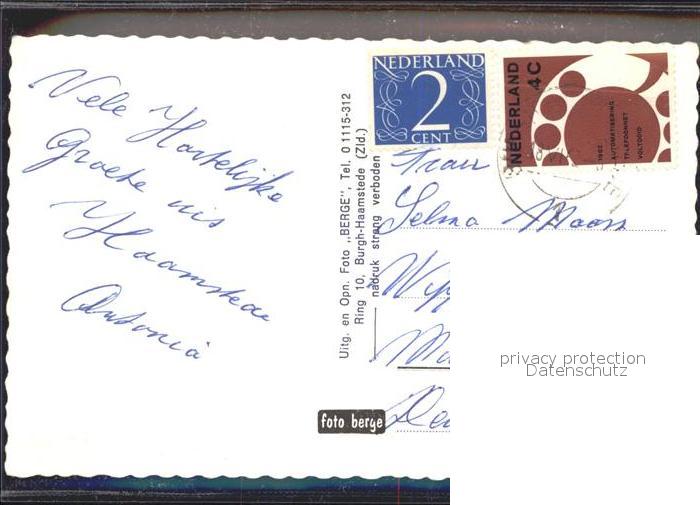 Vele Hartelijke
Groete uis
Haamstede
Antonia
Uitg. en Opn. Foto „BERGE", Tel. 0 1115-312
Ring 10, Burgh-Haamstede (Zld.)
nadruk streng verboden
foto berge
NEDERLAND
2
CENT
NEDERLAND
4C
1962
AUTOMATISERING
TELEFOONNET
VOLTOOID
Frau
Selma Maass
privacy protection
Datenschutz